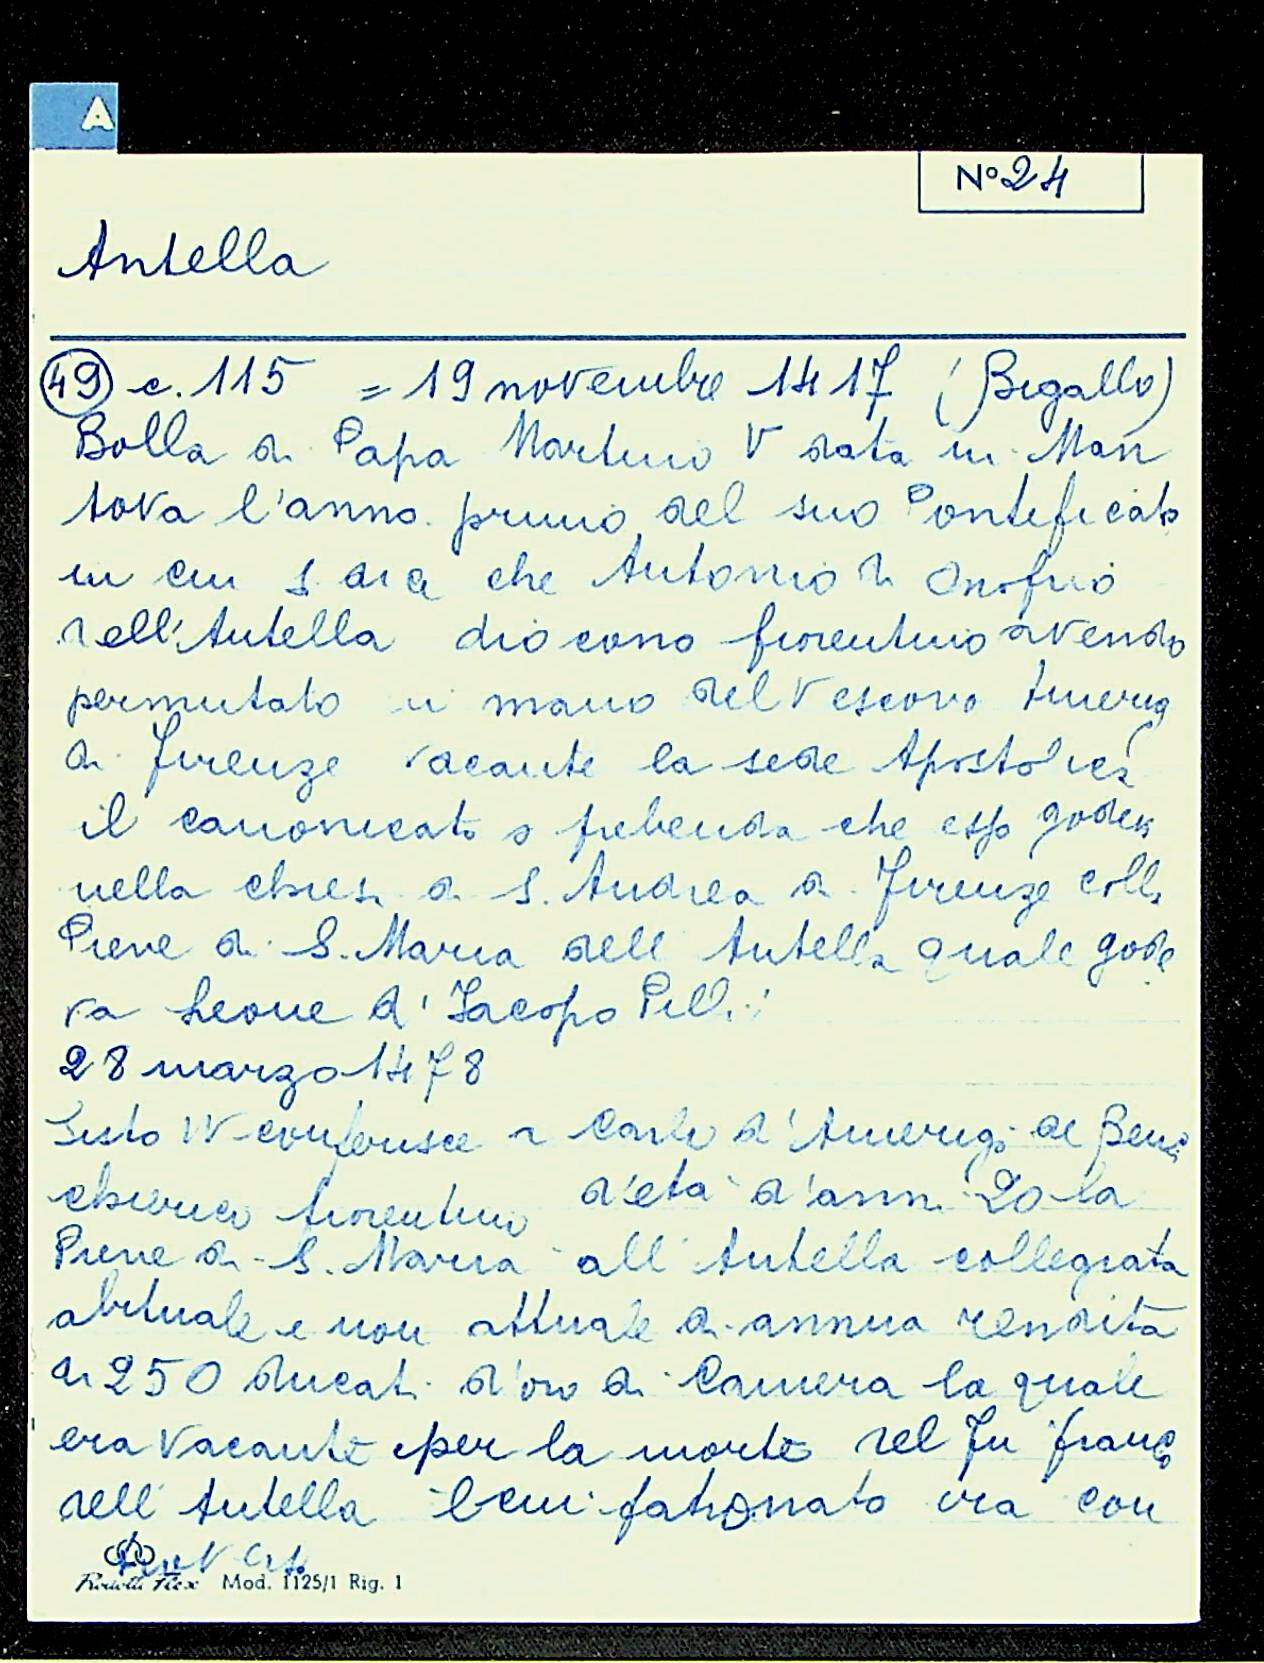 A
N° 24
Antella
49 c. 115 = 19 novembre 1417 (Bigallo)
Bolla di Papa Martino V data in Man
tova l'anno primo del suo Pontificato
in cui si dice che Antonio di Onofrio
dell'Antella diocono fiorentino avendo
permutato in mano del Vescovo Amerig
di Firenze vacante la sede Apostolica
il canonicato e prebenda che esso godeva
nella chiesa di S. Andrea di Firenze colla
Pieve di S. Maria dell Antella quale gode
va Leone d'Iacopo Pilli
28 marzo 1478
Sisto IV conferisce a Carlo d'Amerigi de Benci
chierico fiorentino d'età d'anni 20 la
Pieve di S. Maria all'Antella collegiata
abituale e non attuale di annua rendita
di 250 ducati d'oro di Camera la quale
era vacante per la morte del fu Franc
dell'Antella il cui patronato era con
Mod. 1125/1 Rig. 1